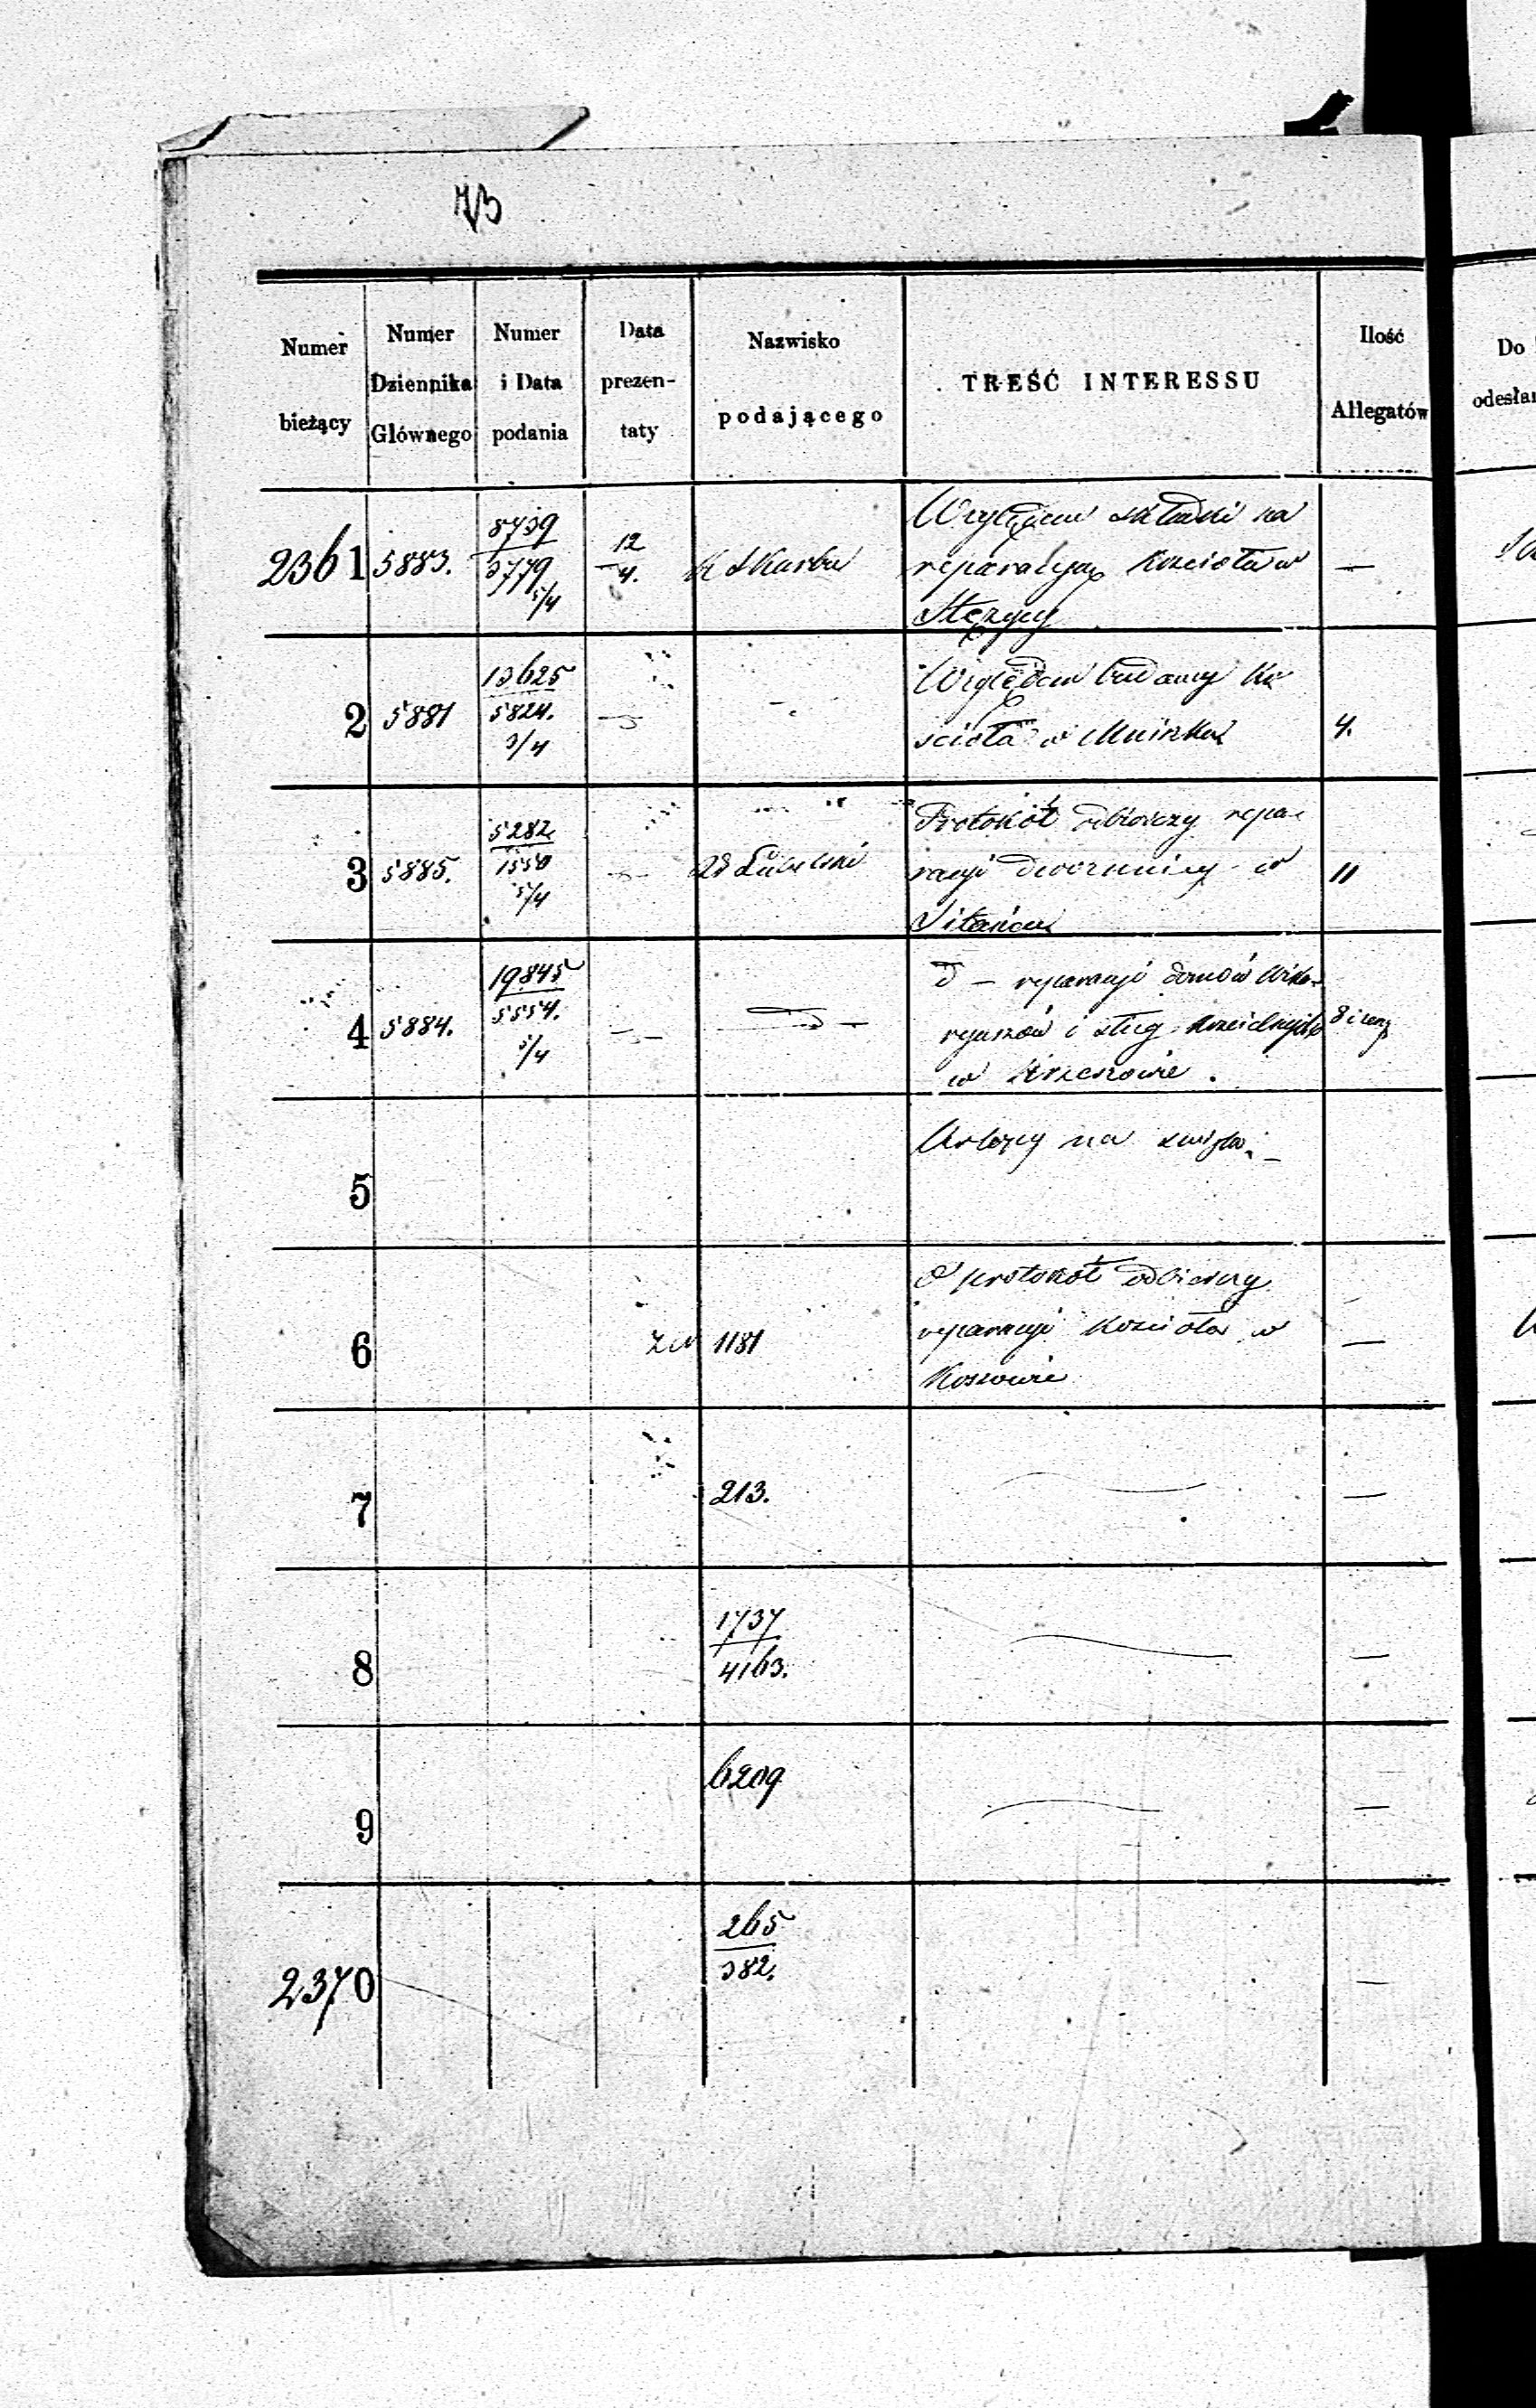 73
Numer bieżący
Numer Dziennika Głównego
Numer i Data podania
Data prezen-taty
Nazwisko podającego
TREŚĆ INTERESSU
Ilość Allegatów
Do
odesłan
2361 5883. 8739/3779 5/4 12/4. K Skarbu
Względem składki na
reparacyą kościoła w
Stężycy
—
2 5881 13625/5824. 3/4
Względem budowy ko
scioła w
4.
3 5885. 5282/1550 5/4 Lubelski
Protokół odbiorczy repa-
racyi dwornicy w
Sitańcu
11
4 5884. 19845/5554. 5/4 — D —
D — reparacyi domów Wika-
ryuszów i sług kościelnych
w Krzeszowie.
8 i
5
na
6 1181
O protokół odbiorczy
reparacyi kościoła w
Kossowie
—
7 213. —
8 1737/4163. —
9 6209 —
2370 265/382. —